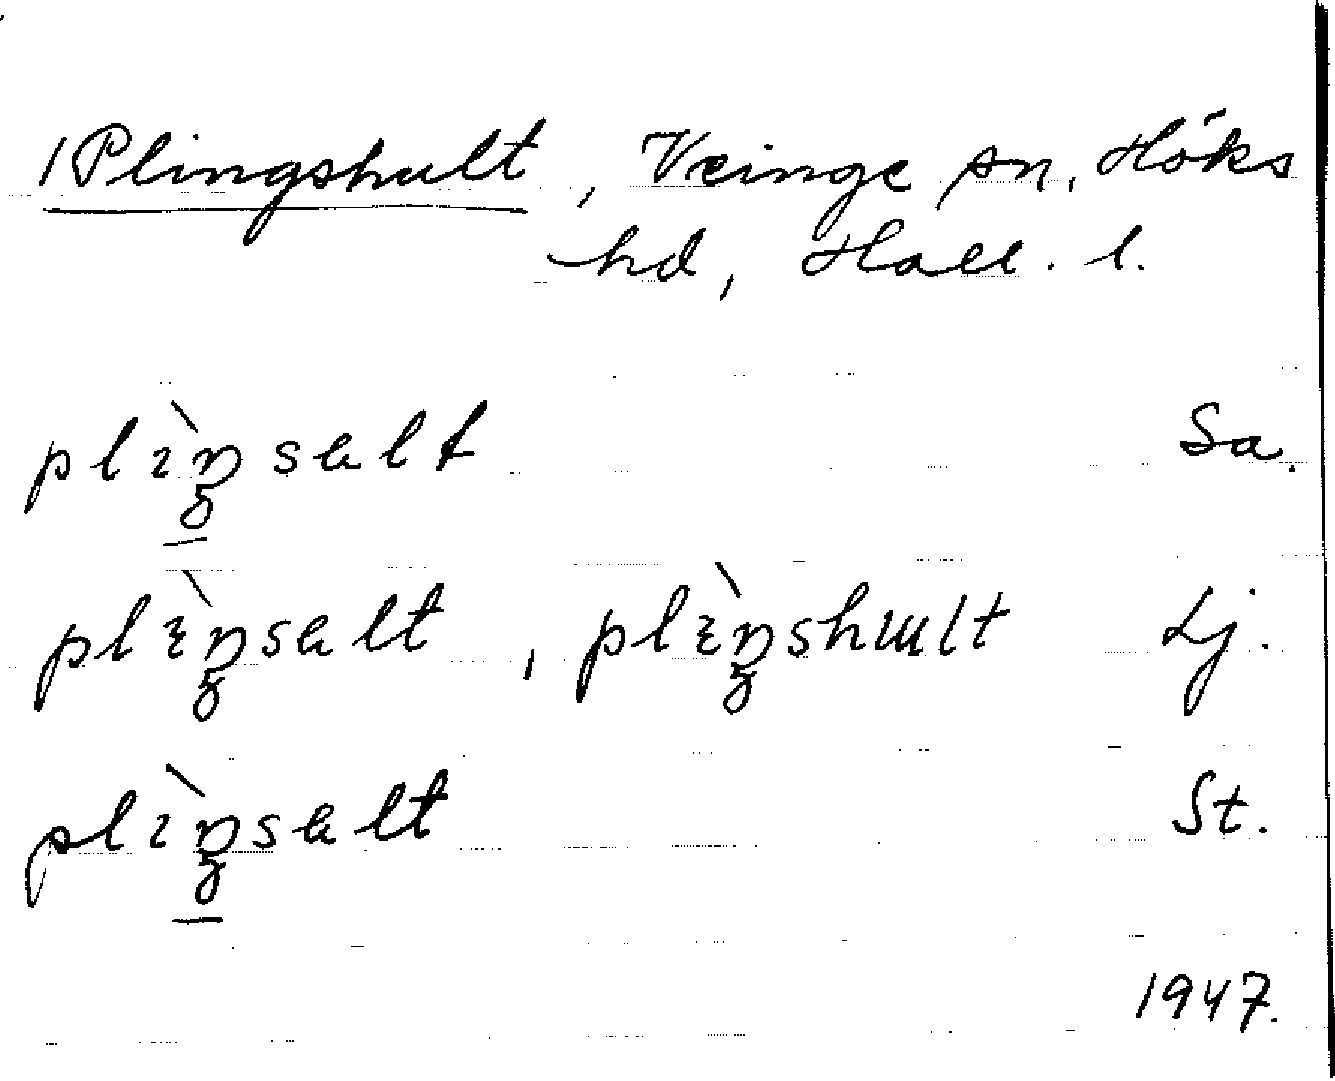 1 Plingshult, Veinge sn, Höks
hd, Hall. l.
plìŋsalt Sa.
plìŋsalt, plìŋshult Lj.
plìŋsalt St.
1947.